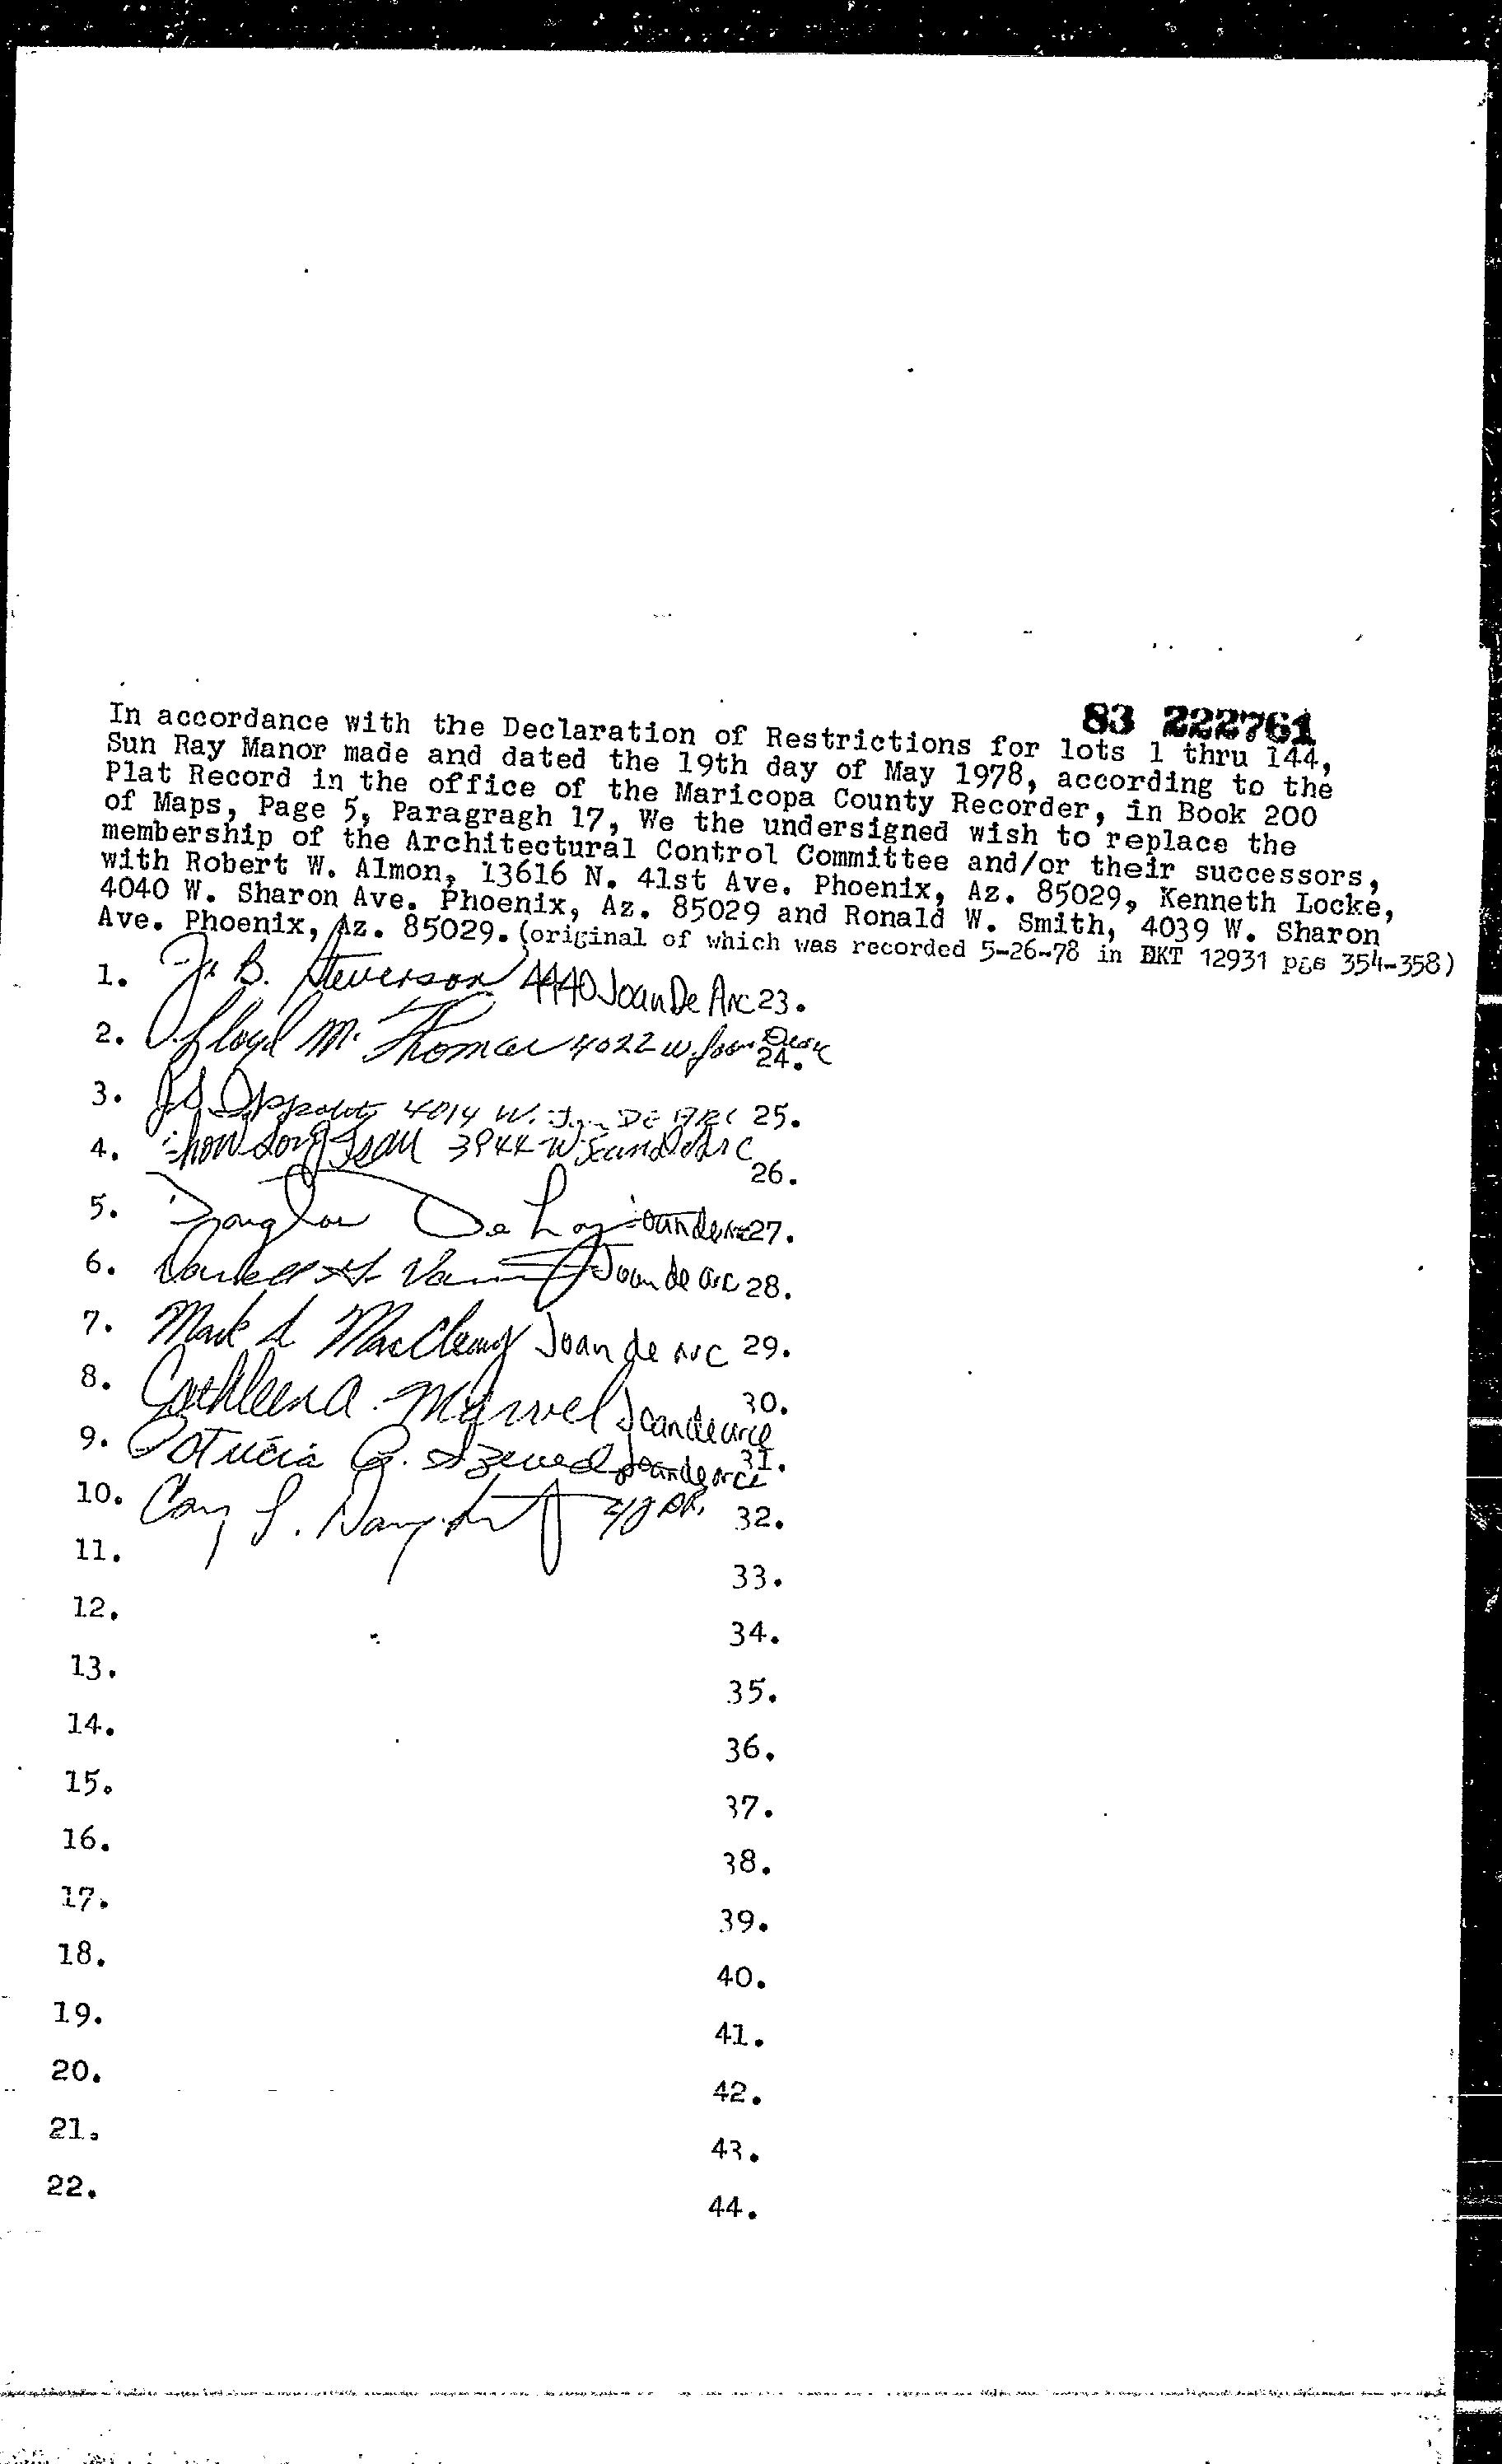 83 222761
In accordance with the Declaration of Restrictions for lots 1 thru 144,
Sun Ray Manor made and dated the 19th day of May 1978, according to the
Plat Record in the office of the Maricopa County Recorder, in Book 200
of Maps, Page 5, Paragragh 17, We the undersigned wish to replace the
membership of the Architectural Control Committee and/or their successors,
with Robert W. Almon, 13616 N. 41st Ave. Phoenix, Az. 85029, Kenneth Locke,
4040 W. Sharon Ave. Phoenix, Az. 85029 and Ronald W. Smith, 4039 W. Sharon
Ave. Phoenix, Az. 85029. (original of which was recorded 5-26-78 in DKT 12931 pgs 354-358)
1. B. Steverson 4440 Joan De Arc 23.
2. Lloyd M. Thomas 4022 W. Joan De Arc 24.
3. 4014 W. Joan De Arc 25.
4. 3944 W Joan De Arc 26.
5. Douglas De Joandearc 27.
6. Joan de arc 28.
7. Mark Joan de arc 29.
8. Cathleen A. Joandearc 30.
9. Patricia Joandearc 31.
10. 32.
11. 33.
12. 34.
13. 35.
14. 36.
15. 37.
16. 38.
17. 39.
18. 40.
19. 41.
20. 42.
21. 43.
22. 44.